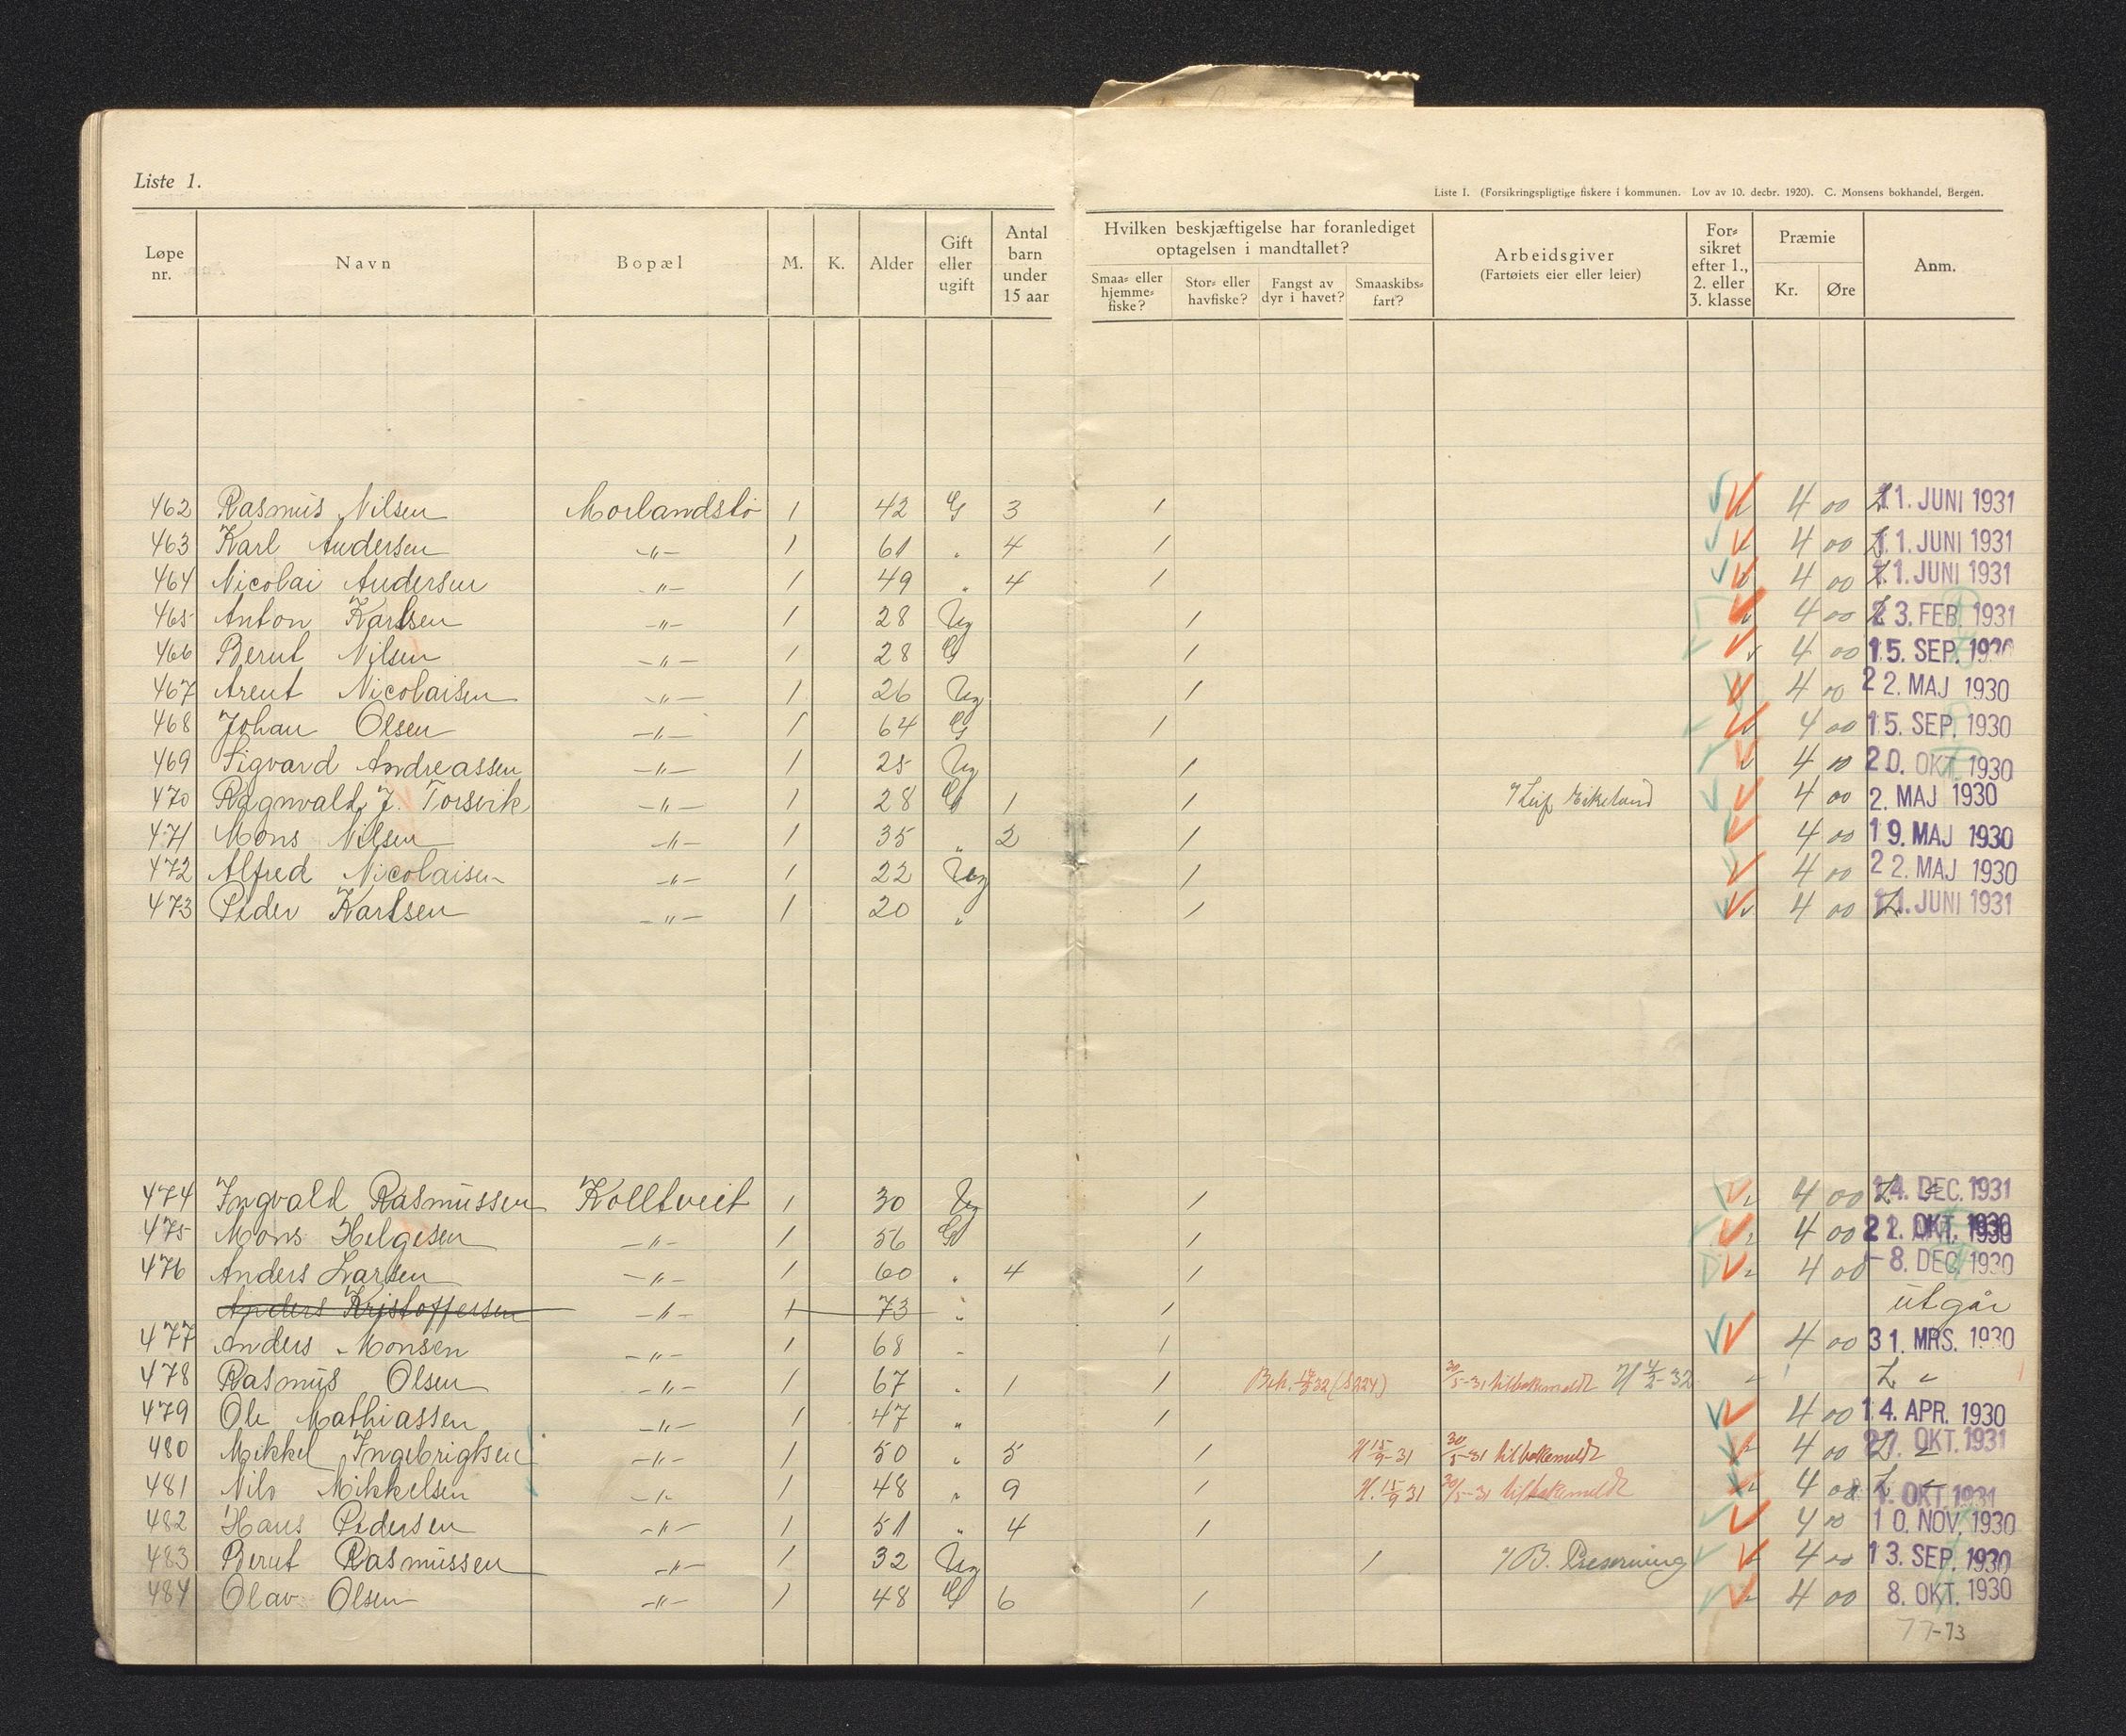 Liste 1.
Liste I. (Forsikringspligtige fiskere i kommunen. Lov av 10. decbr. 1920). C. Monsens bokhandel, Bergen.
Løpe nr. Navn Bopæl M. K. Alder Gift eller ugift Antal barn under 15 aar Hvilken beskjæftigelse har foranlediget optagelsen i mandtallet? Smaa- eller hjemme-fiske? Stor- eller havfiske? Fangst av dyr i havet? Smaaskibs-fart? Arbeidsgiver (Fartøiets eier eller leier) For-sikret efter 1., 2. eller 3. klasse Præmie Kr. Øre Anm.
462 Rasmus Nilsen Morlandstø 1 42 G 3 1 4 00 11. JUNI 1931
463 Karl Andersen -"- 1 61 " 4 1 4 00 11. JUNI 1931
464 Nicolai Andersen -"- 1 49 " 4 1 4 00 11. JUNI 1931
465 Anton Karlsen -"- 1 28 Ug 1 4 00 23. FEB. 1931
466 Bernt Nilsen -"- 1 28 G 1 4 00 15. SEP. 1930
467 Arent Nicolaisen -"- 1 26 Ug 1 4 00 22. MAJ 1930
468 Johan Olsen -"- 1 64 G 1 4 00 15. SEP. 1930
469 Sigvard Andreassen -"- 1 25 Ug 1 4 00 20. OKT. 1930
470 Ragnvald J. Torsvik -"- 1 28 G 1 1 Leif Eikeland 4 00 2. MAJ 1930
471 Mons Nilsen -"- 1 35 " 2 1 4 00 19. MAJ 1930
472 Alfred Nicolaisen -"- 1 22 Ug 1 4 00 22. MAJ 1930
473 Peder Karlsen -"- 1 20 " 1 4 00 11. JUNI 1931
474 Ingvald Rasmussen Kolltveit 1 30 Ug 1 4 00 14. DEC. 1931
475 Mons Helgesen -"- 1 56 G 1 4 00 OKT. 1930
476 Anders Larsen -"- 1 60 " 4 1 4 00 -8. DEC. 1930
Anders Kristoffersen -"- 1 73 " 1 utgår
477 Anders Monsen -"- 1 68 - 1 4 00 31. MRS. 1930
478 Rasmus Olsen -"- 1 67 " 1 1 30/5-31 tilbakemeldt
479 Ole Mathiassen -"- 1 47 " 1 4 00 14. APR. 1930
480 Mikkel Ingebrigtsen -"- 1 50 " 5 1 15/9-31 30/5-31 tilbakemeldt 4 00 OKT. 1931
481 Nils Mikkelsen -"- 1 48 " 9 1 15/9 31 30/5-31 tilbakemeldt 4 00 OKT. 1931
482 Hans Pedersen -"- 1 51 " 4 1 4 00 10. NOV. 1930
483 Bernt Rasmussen -"- 1 32 Ug 1 4 00 13. SEP. 1930
484 Olav Olsen -"- 1 48 G 6 1 4 00 8. OKT. 1930
77-73